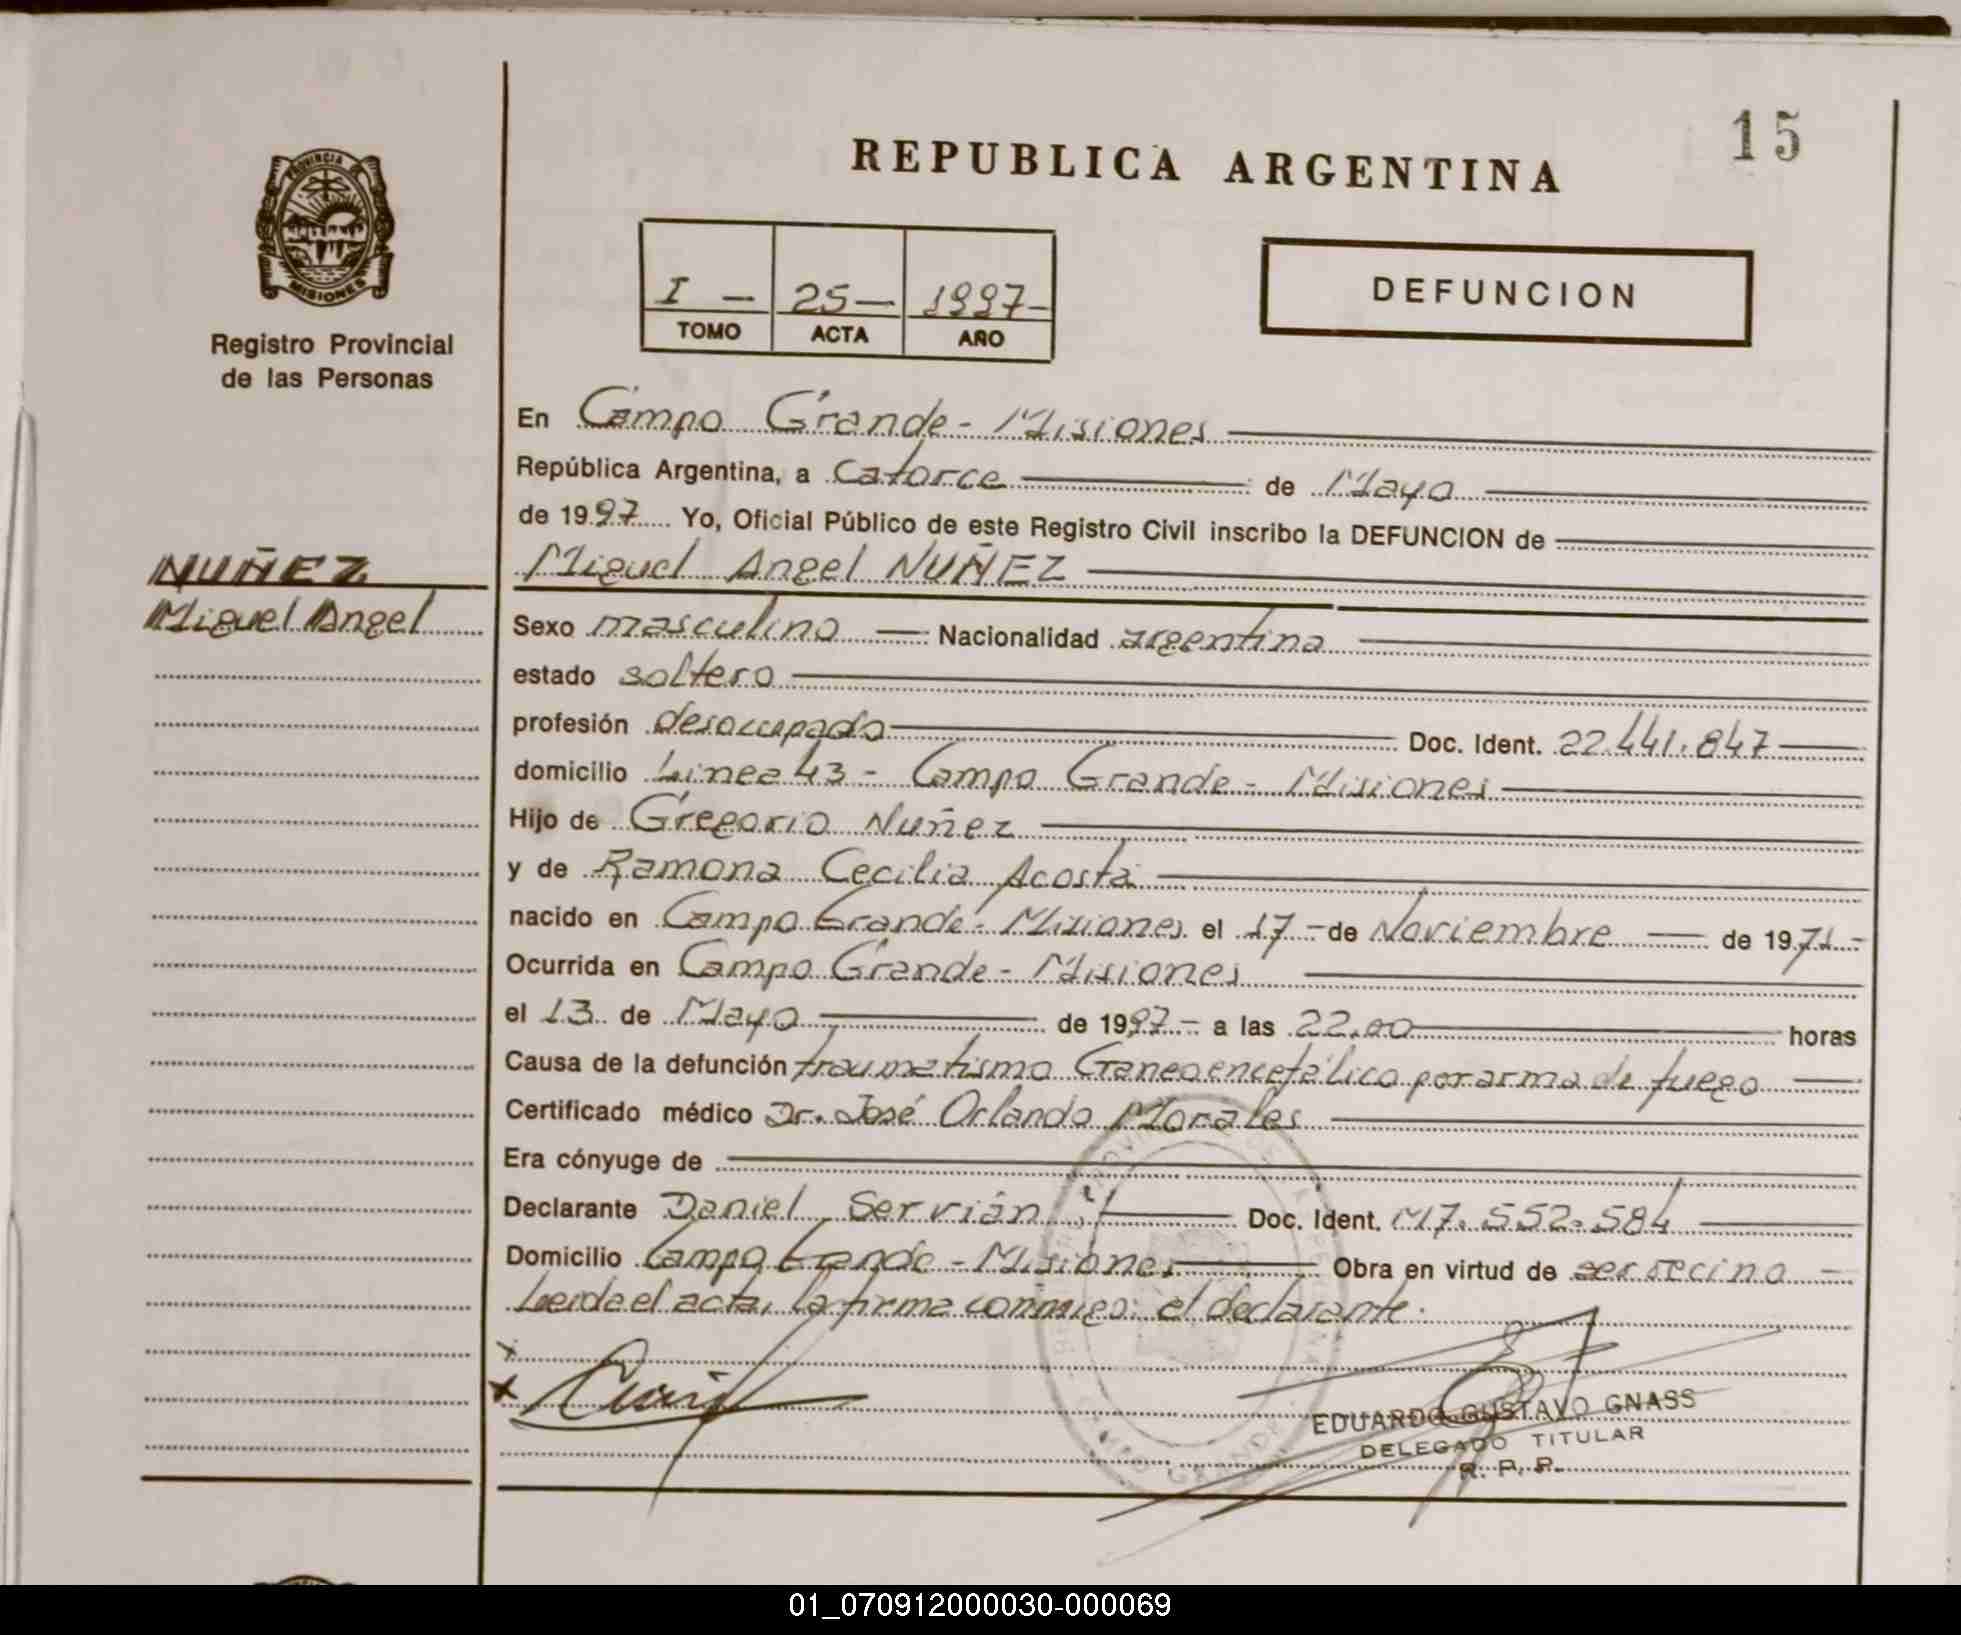 15
REPUBLICA ARGENTINA
PROVINCIA DE
MISIONES
Registro Provincial
de las Personas
I – 25 – 1997 –
TOMO ACTA AÑO
DEFUNCION
En Campo Grande - Misiones
República Argentina, a catorce de Mayo
de 1997 Yo, Oficial Público de este Registro Civil inscribo la DEFUNCION de
Miguel Angel NUÑEZ
NUÑEZ
Miguel Angel
Sexo masculino Nacionalidad argentina
estado soltero
profesión desocupado Doc. Ident. 22.441.847
domicilio Linea 43 - Campo Grande - Misiones
Hijo de Gregorio Nuñez
y de Ramona Cecilia Acosta
nacido en Campo Grande - Misiones el 17 – de Noviembre de 1971 –
Ocurrida en Campo Grande - Misiones
el 13 de Mayo de 1997 – a las 22,00 horas
Causa de la defunción traumatismo Craneoencefálico por arma de fuego
Certificado médico Dr. José Orlando Morales
Era cónyuge de
Declarante Daniel Servián Doc. Ident. M17.552.584
Domicilio Campo Grande - Misiones Obra en virtud de ser vecino –
Leida el acta, la firma conmigo: el declarante.
EDUARDO GUSTAVO GNASS
DELEGADO TITULAR
R. P. P.
01_070912000030-000069